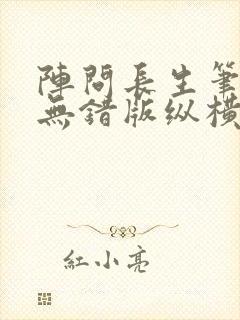 陣問長生筆
無錯版纵橫
紅小亮